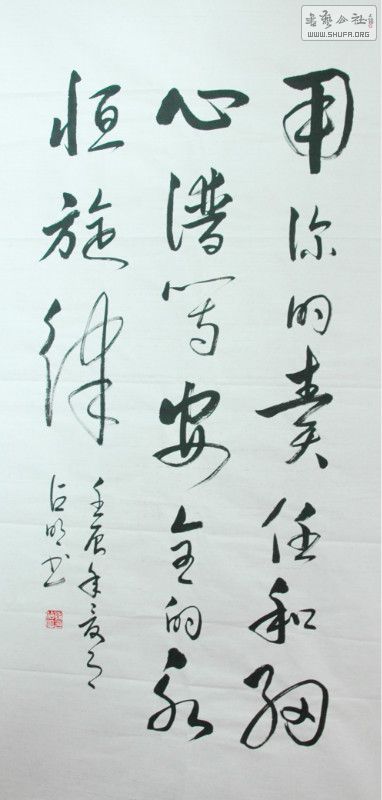 书艺公社
WWW.SHUFA.ORG
用你的责任和细
心谱写安全的永
恒旋律
壬辰年夏月
占明书